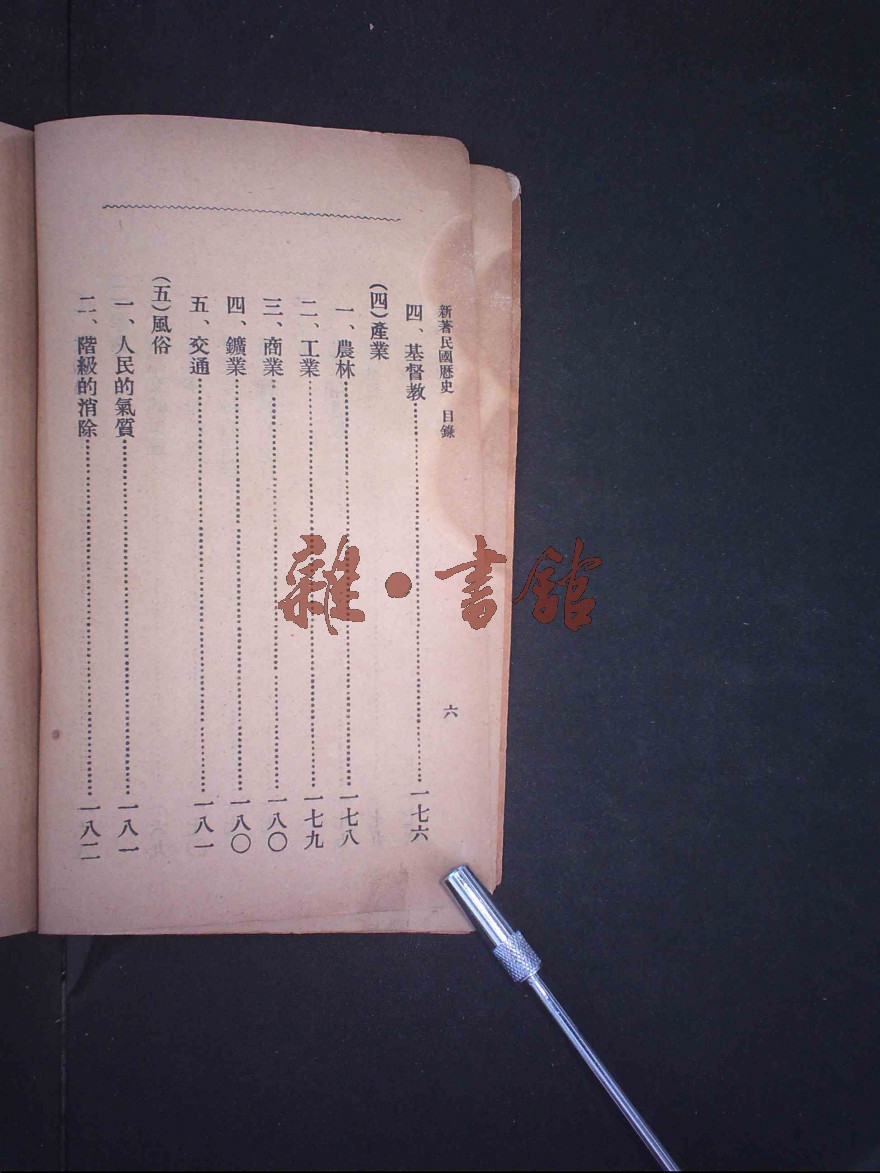 新著民國歷史　目錄
六
四、基督教……………………一七六
(四)產業
一、農林……………………一七八
二、工業……………………一七九
三、商業……………………一八〇
四、鑛業……………………一八〇
五、交通……………………一八一
(五)風俗
一、人民的氣質……………………一八一
二、階級的消除……………………一八二
雜·書館